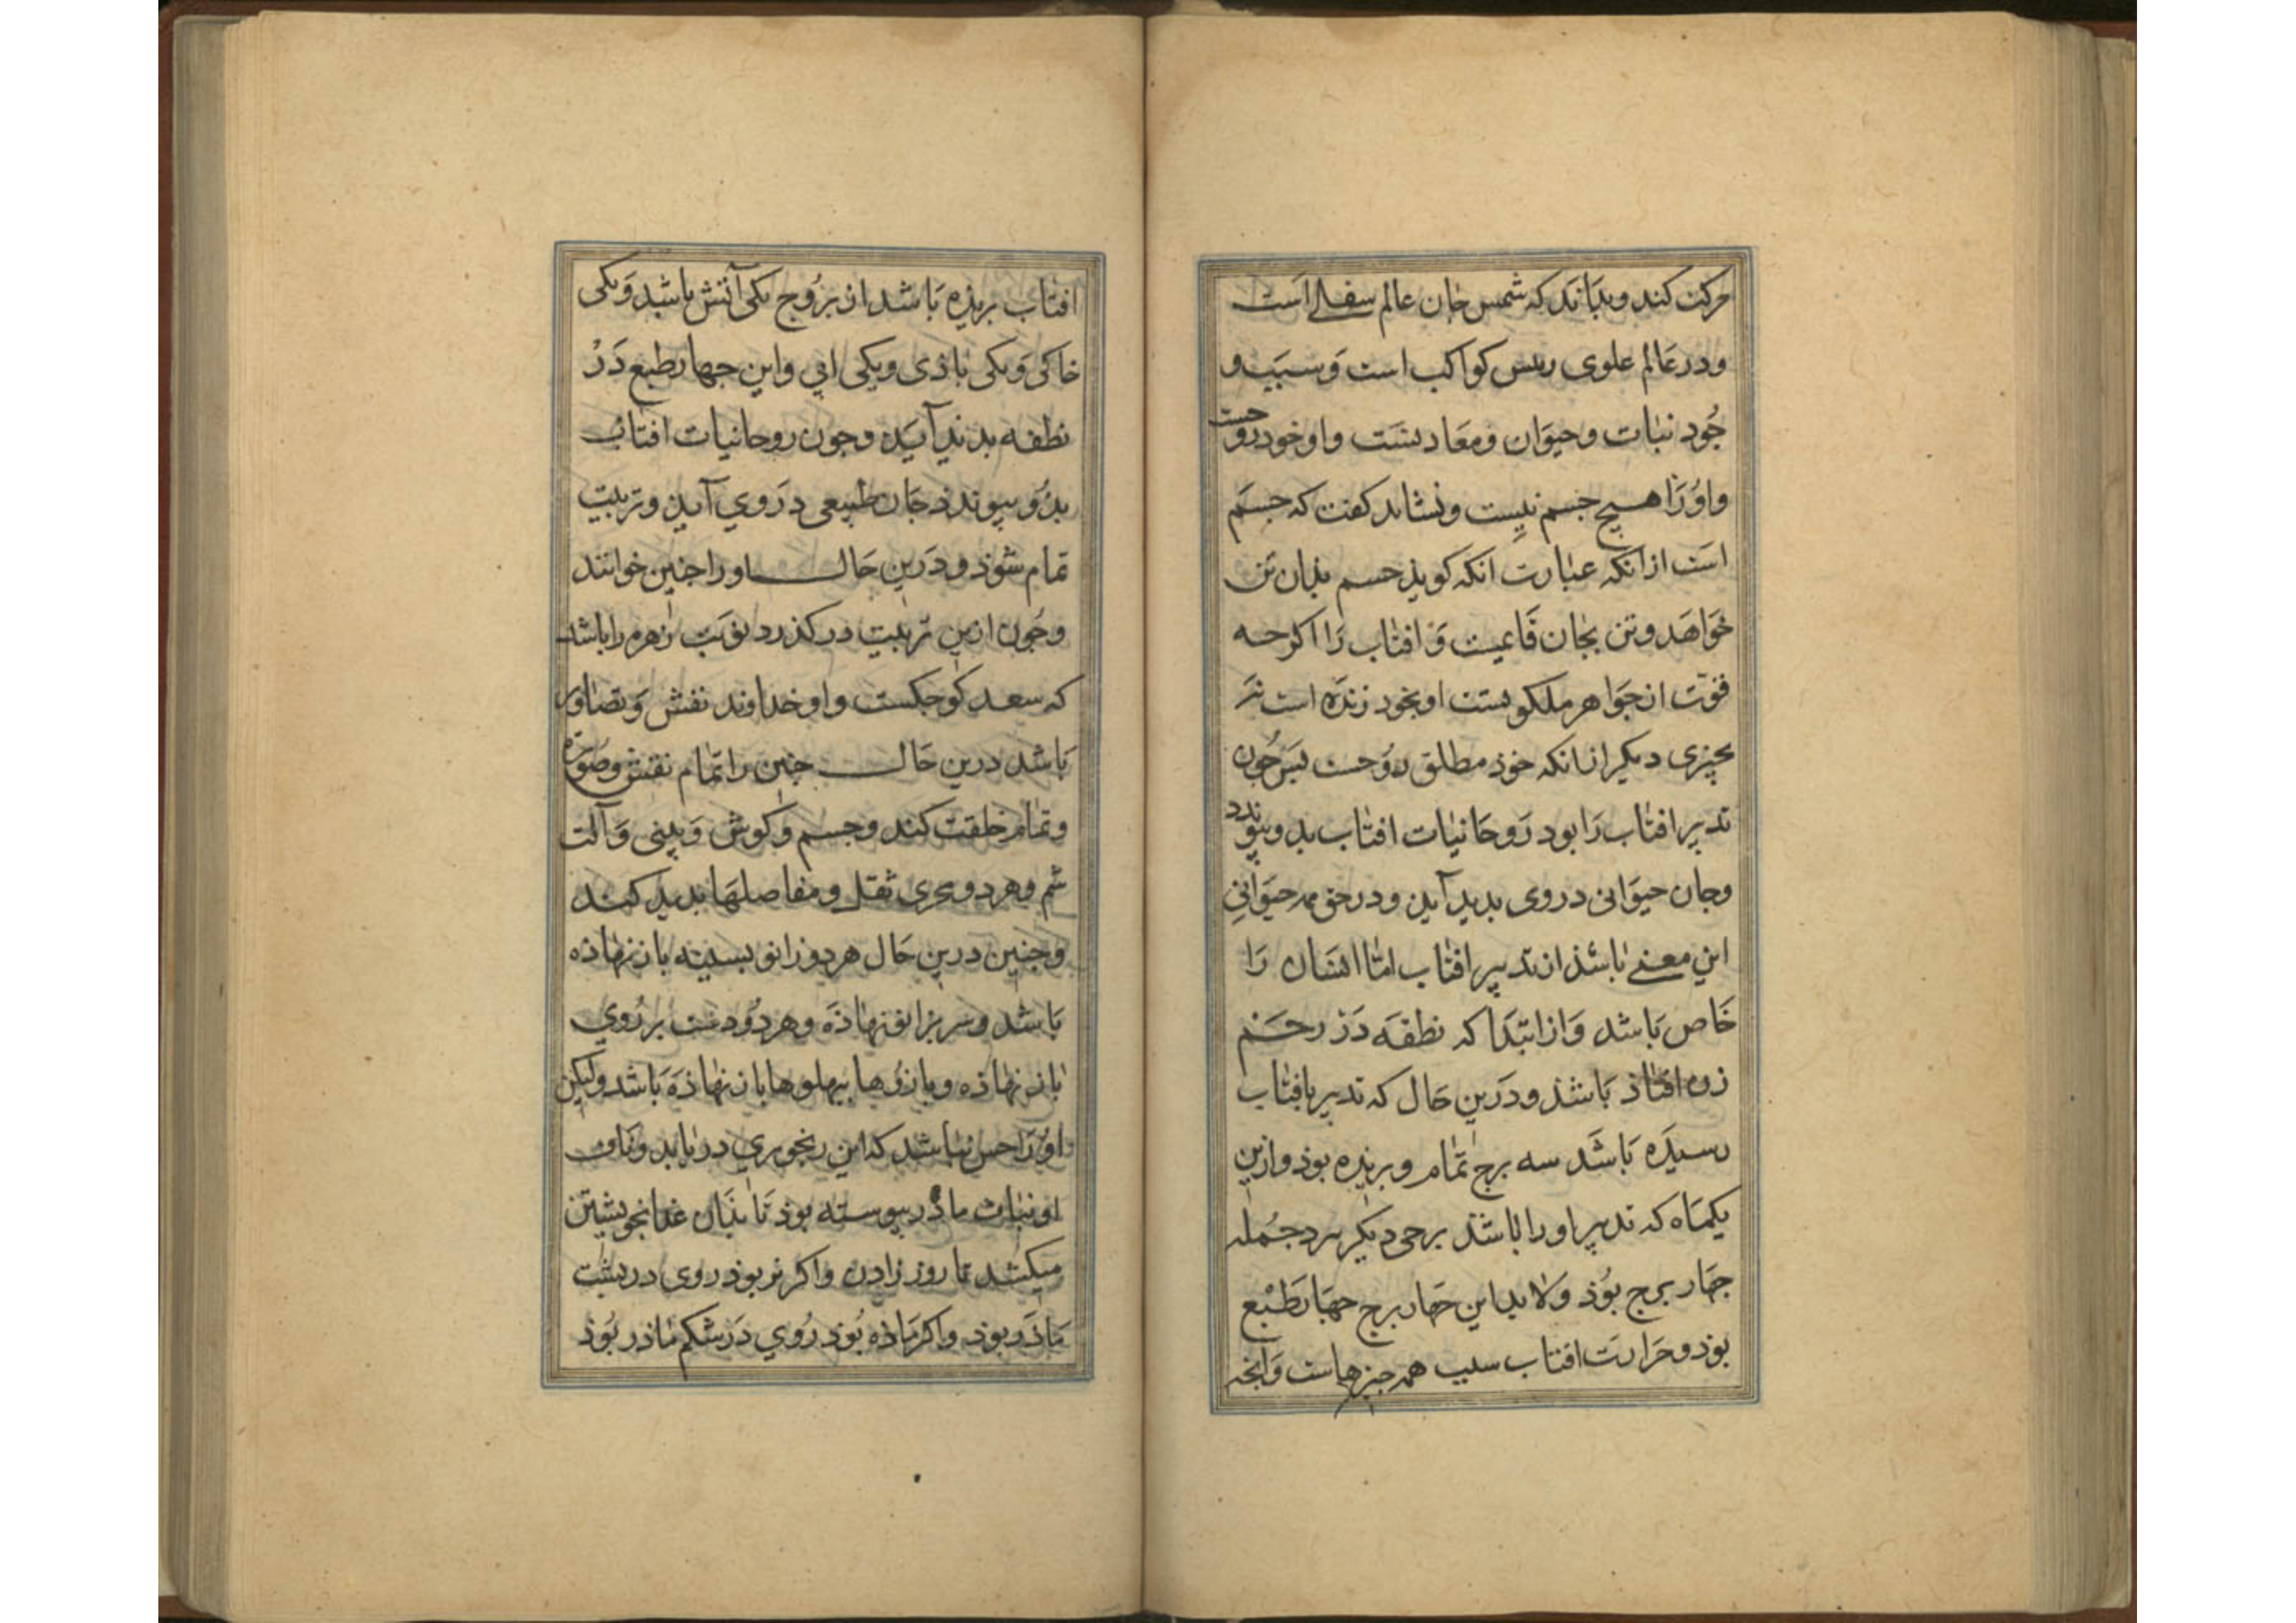 حرکت کند و بدانند که شمس جان عالم سفلی است
ودر عالم علوی رییس کواکب است وَسبَب و
جُود نبات وحیوان ومعادنست واو خود روحیست
واوُرا هیچ جسم نیست ونشاید کفت که جسم
است ازانکه عبارت انکه کویذ جسم بذان تن
خواهَد وتن بجان قایمست وَافتاب رَا اکرچه
قوّت از جَواهر ملکوتست او بخود زندَه است نَه
بچیزی دیکر ازانکه خوذ مطلق رُوحست پس چُون
تدبیر افتاب رَا بود رَوحانیات افتاب بدو پیوندد
وجان حیوَانی در وی بدید آید ودر حق همه حیوَانی
این معنی باشذ از تدبیر افتاب امّا انسَان رَا
خَاص بَاشد وَاز ابتدَا که نطفَه دَر رحم
زن افتاذ بَاشَذ ودرَین حَال که تدبیر بافتاب
رسیدَه بَاشَد سه برج تمام وبریذه بوذ وازین
یکمَاه که تدبیر او را باشَذ برجی دیکر برد جُمله
جهَار برج بوُذ وَلا بد این جهَار برج جهَارطَبْع
بوَذ وحَرارت افتاب سبب همه جیزهاست وَانجه
افتاب بریذه بَاشد از بزُوج یکی آتش باشد وَیکی
خاکی وَیکی بَاذی ویکی ابی واین جهار طبع دَرْ
نطفه بدید آیَد وجون روحانیات افتاب
بدُو پیوندذ جَان طبیعی دَروي آید وتربیت
تمام شوذ ودَرین حَال او را جنین خوانند
وجُون ازین تربیت درکذرد نوبَت زهره را باشد
که سعد کوجکست واو خداوند نقش وَتصاویر
بَاشد درین حَال جنین را تمام نقش وصُورة
وتمام خلقت کند وجسم وَکوش وَبینی وَآلت
شم وهردو مجری ثقل ومفاصلهَا بدید کند
وجنین درین حَال هردو زانو بسینه باز نهاذه
بَاشد وسر بزانو نهاذَه وهردُو دست بر رُوي
باز نهاذه وبازوُها بپهلوها باز نهاذَه بَاشد ولیکن
اوُرَا حس نباشد که این رنجوري دریابد وناف
او بناف ماذَر پیوسته بوَذ تَا بذَان غذا بخویشتن
میکشد تا روز زادن واکر نر بوذ روی در پشت
مَاذَر بوذ واکر مَاذه بُوَذ رُوي دَر شکم ماذر بُوَذ